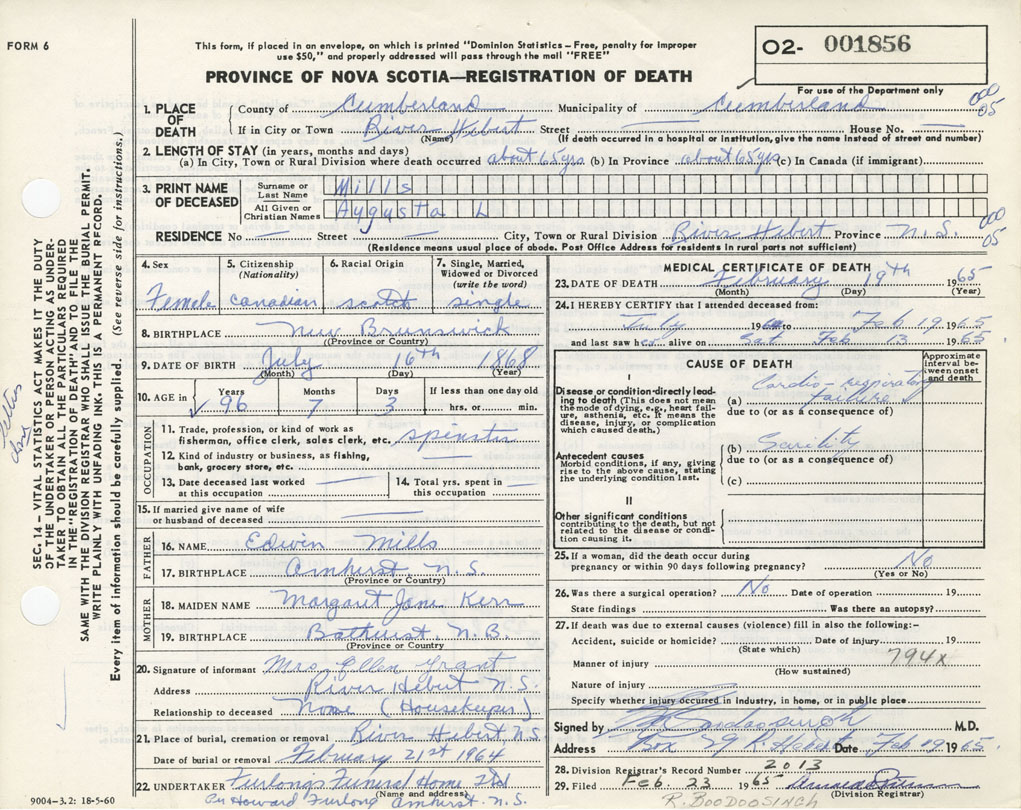 FORM 6
This form, if placed in an envelope, on which is printed "Dominion Statistics – Free, penalty for improper
use $50," and properly addressed will pass through the mail "FREE"
PROVINCE OF NOVA SCOTIA—REGISTRATION OF DEATH
O2- 001856
For use of the Department only
1. PLACE OF DEATH County of Cumberland Municipality of Cumberland 000 05
If in City or Town River Hebert Street — House No. —
(Name) (If death occurred in a hospital or institution, give the name instead of street and number)
2. LENGTH OF STAY (in years, months and days)
(a) In City, Town or Rural Division where death occurred about 65 yrs (b) In Province about 65 yrs (c) In Canada (if immigrant)
3. PRINT NAME OF DECEASED Surname or Last Name Mills
All Given or Christian Names Aygusta L
RESIDENCE No — Street — City, Town or Rural Division River Hebert Province N.S. 000 05
(Residence means usual place of abode. Post Office Address for residents in rural parts not sufficient)
4. Sex Female
5. Citizenship (Nationality) canadian
6. Racial Origin scotch
7. Single, Married, Widowed or Divorced (write the word) single
8. BIRTHPLACE New Brunswick
(Province or Country)
9. DATE OF BIRTH July 16th 1868
(Month) (Day) (Year)
10. AGE in Years 96 Months 7 Days 3 If less than one day old hrs. or min.
OCCUPATION
11. Trade, profession, or kind of work as
fisherman, office clerk, sales clerk, etc. spinster
12. Kind of industry or business, as fishing,
bank, grocery store, etc. —
13. Date deceased last worked
at this occupation —
14. Total yrs. spent in
this occupation —
15. If married give name of wife
or husband of deceased —
FATHER
16. NAME Edwin Mills
17. BIRTHPLACE Amherst, N.S.
(Province or Country)
MOTHER
18. MAIDEN NAME Margaret Jane Kerr
19. BIRTHPLACE Bathurst, N.B.
(Province or Country)
20. Signature of informant Mrs. Ellen Grant
Address River Hebert N.S.
Relationship to deceased None (Housekeeper)
21. Place of burial, cremation or removal River Hebert, N.S.
Date of burial or removal February 21st 1964
22. UNDERTAKER Furlong's Funeral Home Ltd
(Name and address)
Per Howard Furlong Amherst, N.S.
MEDICAL CERTIFICATE OF DEATH
23. DATE OF DEATH February 19th 1965
(Month) (Day) (Year)
24. I HEREBY CERTIFY that I attended deceased from:
July 19 to Feb 19 1965
and last saw h alive on Sat Feb 13 1965
CAUSE OF DEATH
Approximate interval between onset and death
I
Disease or condition directly leading
to death (This does not mean
the mode of dying, e.g., heart failure,
asthenia, etc. It means the
disease, injury, or complication
which caused death.)
(a) Cardio-respiratory failure
due to (or as a consequence of)
Antecedent causes
Morbid conditions, if any, giving
rise to the above cause, stating
the underlying condition last.
(b) Senility
due to (or as a consequence of)
(c)
II
Other significant conditions
contributing to the death, but not
related to the disease or condition
causing it.
25. If a woman, did the death occur during
pregnancy or within 90 days following pregnancy? No
(Yes or No)
26. Was there a surgical operation? No Date of operation 19
State findings Was there an autopsy?
27. If death was due to external causes (violence) fill in also the following:–
Accident, suicide or homicide? Date of injury 19
(State which)
Manner of injury 794x
(How sustained)
Nature of injury
Specify whether injury occurred in industry, in home, or in public place
Signed by M.D.
Address Box 29 R. Hebert Date Feb 19 1965
28. Division Registrar's Record Number 2013
29. Filed Feb. 23 1965
(Division Registrar)
R. BOODOOSINGH
SEC. 14 – VITAL STATISTICS ACT MAKES IT THE DUTY
OF THE UNDERTAKER OR PERSON ACTING AS UNDER-
TAKER TO OBTAIN ALL THE PARTICULARS REQUIRED
IN THE "REGISTRATION OF DEATH" AND TO FILE THE
SAME WITH THE DIVISION REGISTRAR WHO SHALL ISSUE THE BURIAL PERMIT.
WRITE PLAINLY WITH UNFADING INK. THIS IS A PERMANENT RECORD.
Every item of information should be carefully supplied. (See reverse side for instructions.)
9004–3.2: 18-5-60